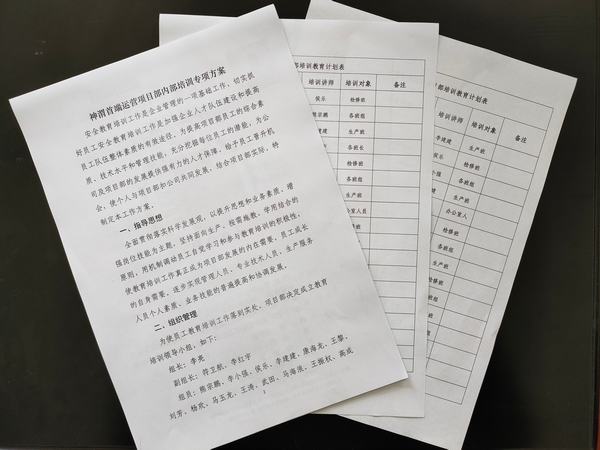 神渭首端运营项目部内部培训专项方案
安全教育培训工作是企业管理的一项基础工作，切实抓
好员工安全教育培训工作是加强企业人才队伍建设和提高
员工队伍整体素质的有效途径，为提高项目部员工的综合素
质、技术水平和管理技能，充分挖掘每位员工的潜能，为公
司及项目部的发展提供强有力的人才保障，给予员工晋升机
会，使个人与项目部和公司共同发展，结合项目部实际，特
制定本工作方案。
一、指导思想
全面贯彻落实科学发展观，以提升思想和业务素质，增
强岗位技能为主题，坚持面向生产、按需施教、学用结合的
原则，用机制调动员工自觉学习和参与教育培训的积极性，
使教育培训工作真正成为项目部发展的内在需要，员工成长
的自身需要，逐步实现管理人员、专业技术人员、生产服务
人员个人素质、业务技能的普遍提高和协调发展。
二、组织管理
为使员工教育培训工作落到实处，项目部决定成立教育
培训领导小组，如下：
组长：李亮
副组长：符卫航、李红宇
组员：熊宗鹏、李小强、侯乐、李建建、康海龙、王黎、
刘芳、杨欢、马玉龙、王涛、武田、马海浪、王振权、高成
1
部培训教育计划表
培训讲师 培训对象 备注
侯乐 检修班
熊宗鹏 各班组
李建建 生产班
各班长
检修班
各班组
生产班
办公室人员
检修班
各班组
生产班
各班组
检修班
生产班
部培训教育计划表
培训讲师 培训对象 备注
李建建 生产班
侯乐 检修班
小强 各班组
生产班
办公室人
检修班
各班组
生产班
各班组
检修班
生产班